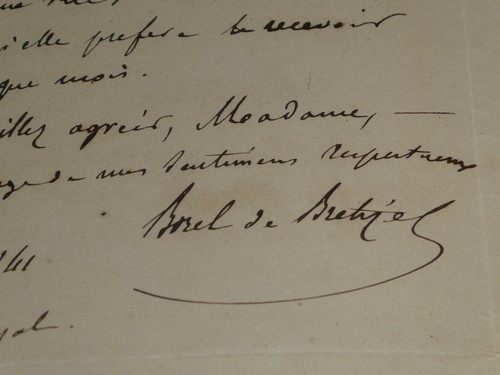 elle prefere le recevoir
que mois.
illez agréer, Madame, —
de mes sentimens respectueux
Borel de Bretizel